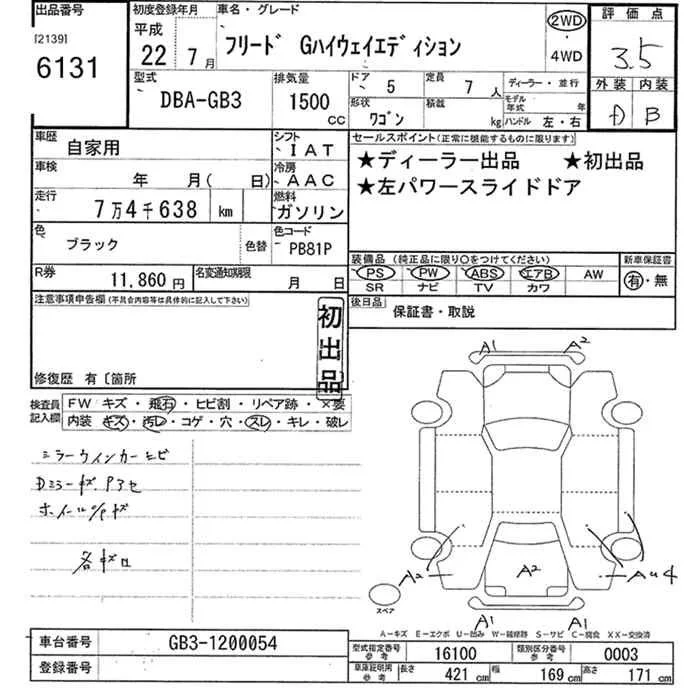 出品番号
[2139]
6131
初度登録年月
平成
22年 7月
車名・グレード
フリード Gハイウェイエディション
2WD
・
4WD
評価点
3.5
外装 内装
B
型式
DBA-GB3
排気量
1500
CC
ドア 5
形状 ワゴン
定員 7人
積載 kg
ディーラー・並行
モデル年式 年
ハンドル 左・右
車歴 自家用
シフト IAT
車検 年 月( 日)
冷房 AAC
走行 7万4千638 km
燃料 ガソリン
色 ブラック 色替
色コード PB81P
R券 11,860円
名変通知期限 月 日
セールスポイント(正常に機能するものに限ります)
★ディーラー出品 ★初出品
★左パワースライドドア
装備品 (純正品に限り○をつけてください)
PS PW ABS エアB AW
SR ナビ TV カワ
新車保証書
有・無
後日品
保証書・取説
注意事項申告欄(不具合内容等は具体的に記入して下さい)
初出品
修復歴 有〔箇所
検査員記入欄
FW キズ・飛石・ヒビ割・リペア跡・×要
内装 キズ・汚レ・コゲ・穴・スレ・キレ・破レ
ミラーウインカーヒビ
Dミラーキズ、アセ
各キズ
A1 A2
A2 A2 Au4
A1 A1
スペア
A-キズ E-エクボ U-凹み W-補修跡 S-サビ C-腐食 XX-交換済
車台番号 GB3-1200054
登録番号
型式指定番号 参考 16100
類別区分番号 参考 0003
車庫証明用 参考 長さ 421 cm 幅 169 cm 高さ 171 cm